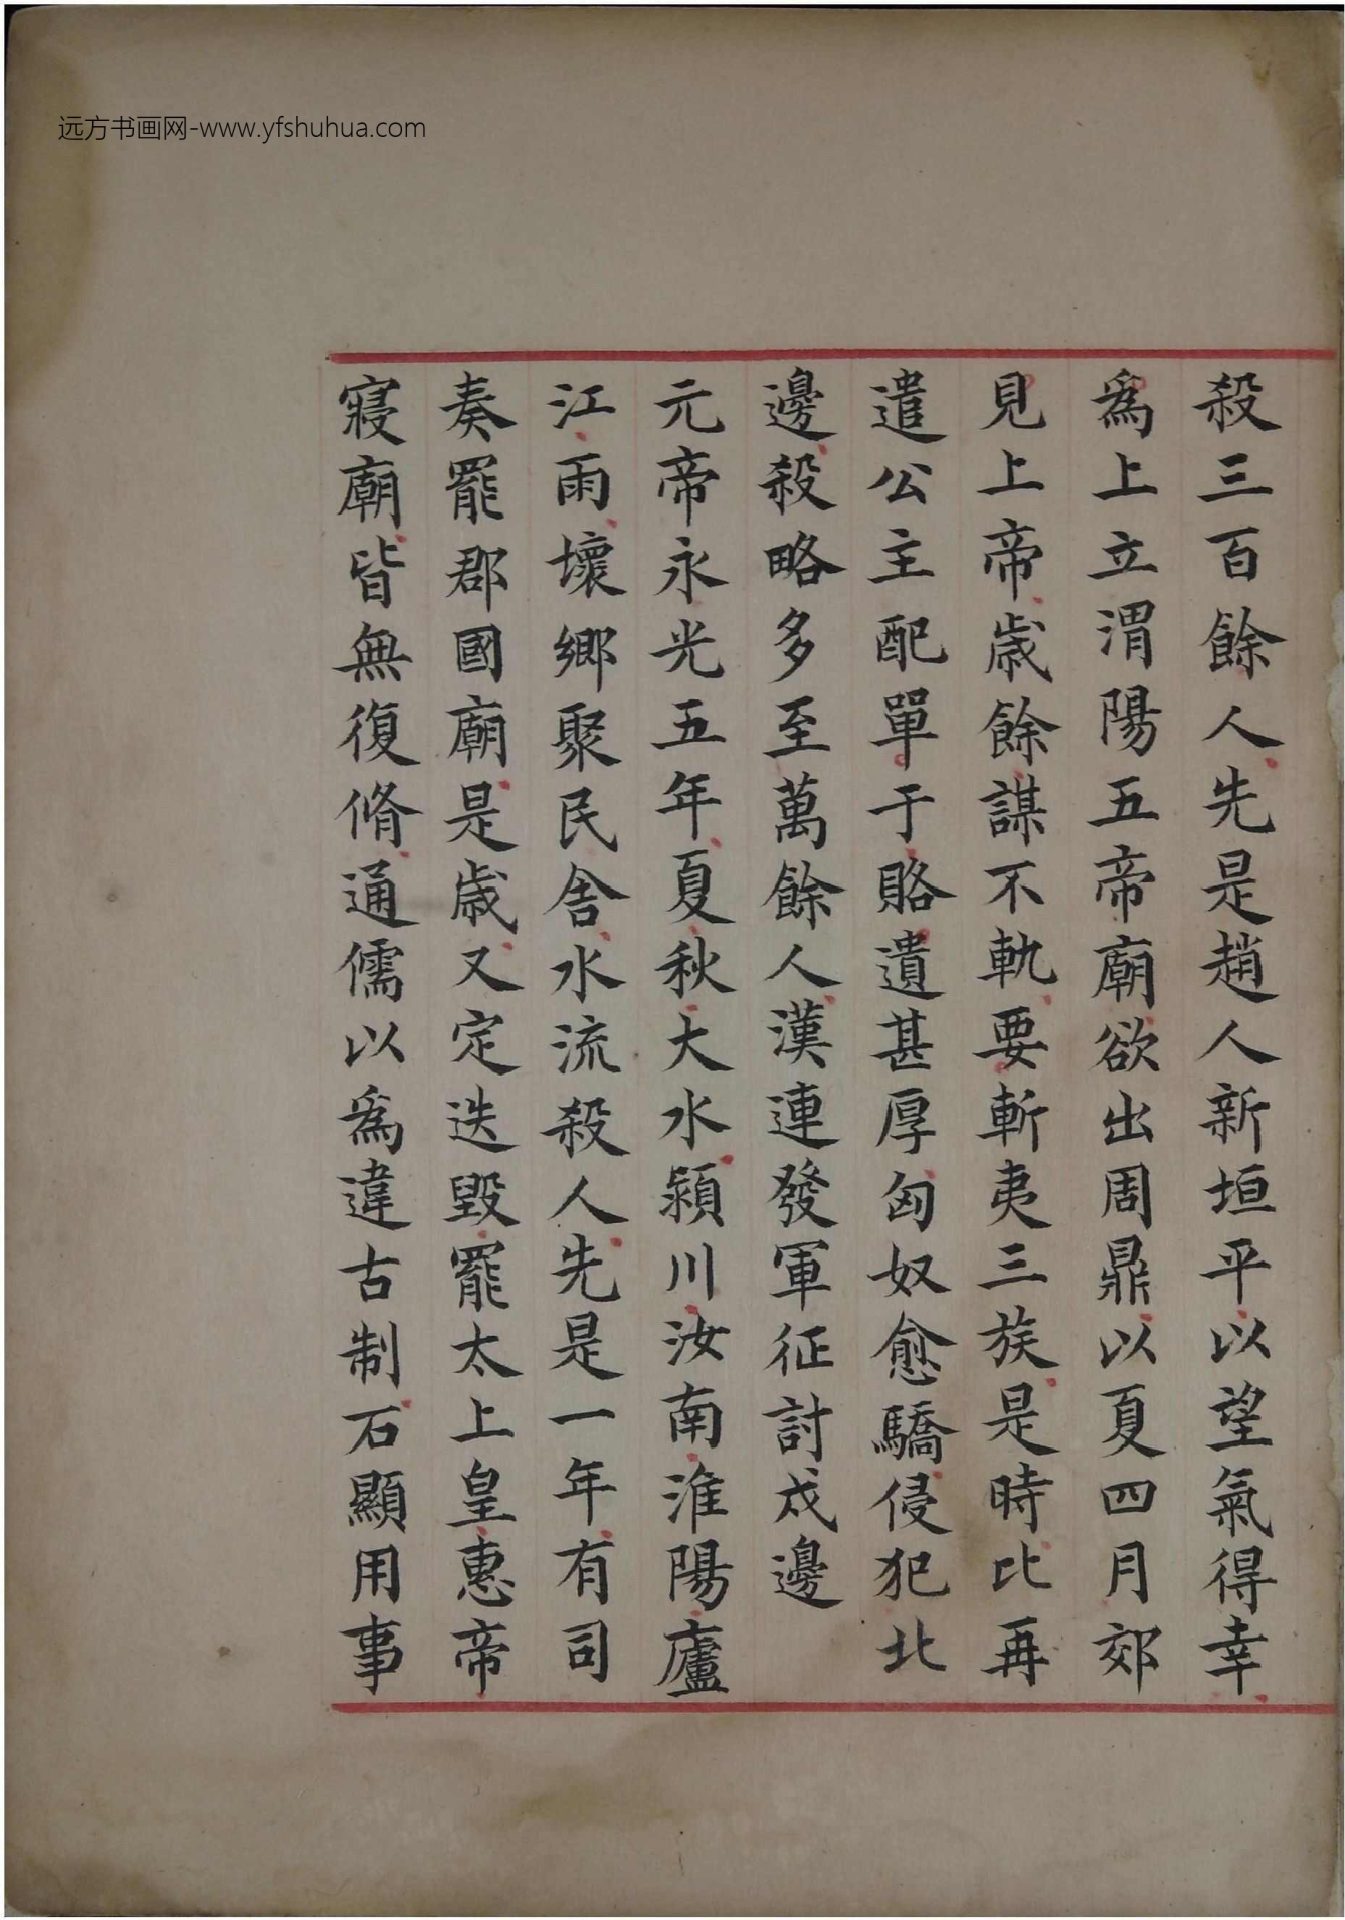 远方书画网-www.yfshuhua.com
殺三百餘人先是趙人新垣平以望氣得幸
爲上立渭陽五帝廟欲出周鼎以夏四月郊
見上帝歲餘謀不軌要斬夷三族是時比再
遣公主配單于賂遺甚厚匈奴愈驕侵犯北
邊殺略多至萬餘人漢連發軍征討戍邊
元帝永光五年夏秋大水潁川汝南淮陽廬
江雨壞鄉聚民舍水流殺人先是一年有司
奏罷郡國廟是歲又定迭毀罷太上皇惠帝
寢廟皆無復脩通儒以爲違古制石顯用事